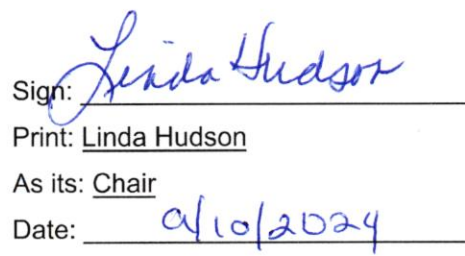 Sign: Linda Hudson
Print: Linda Hudson
As its: Chair
Date: 9/10/2024